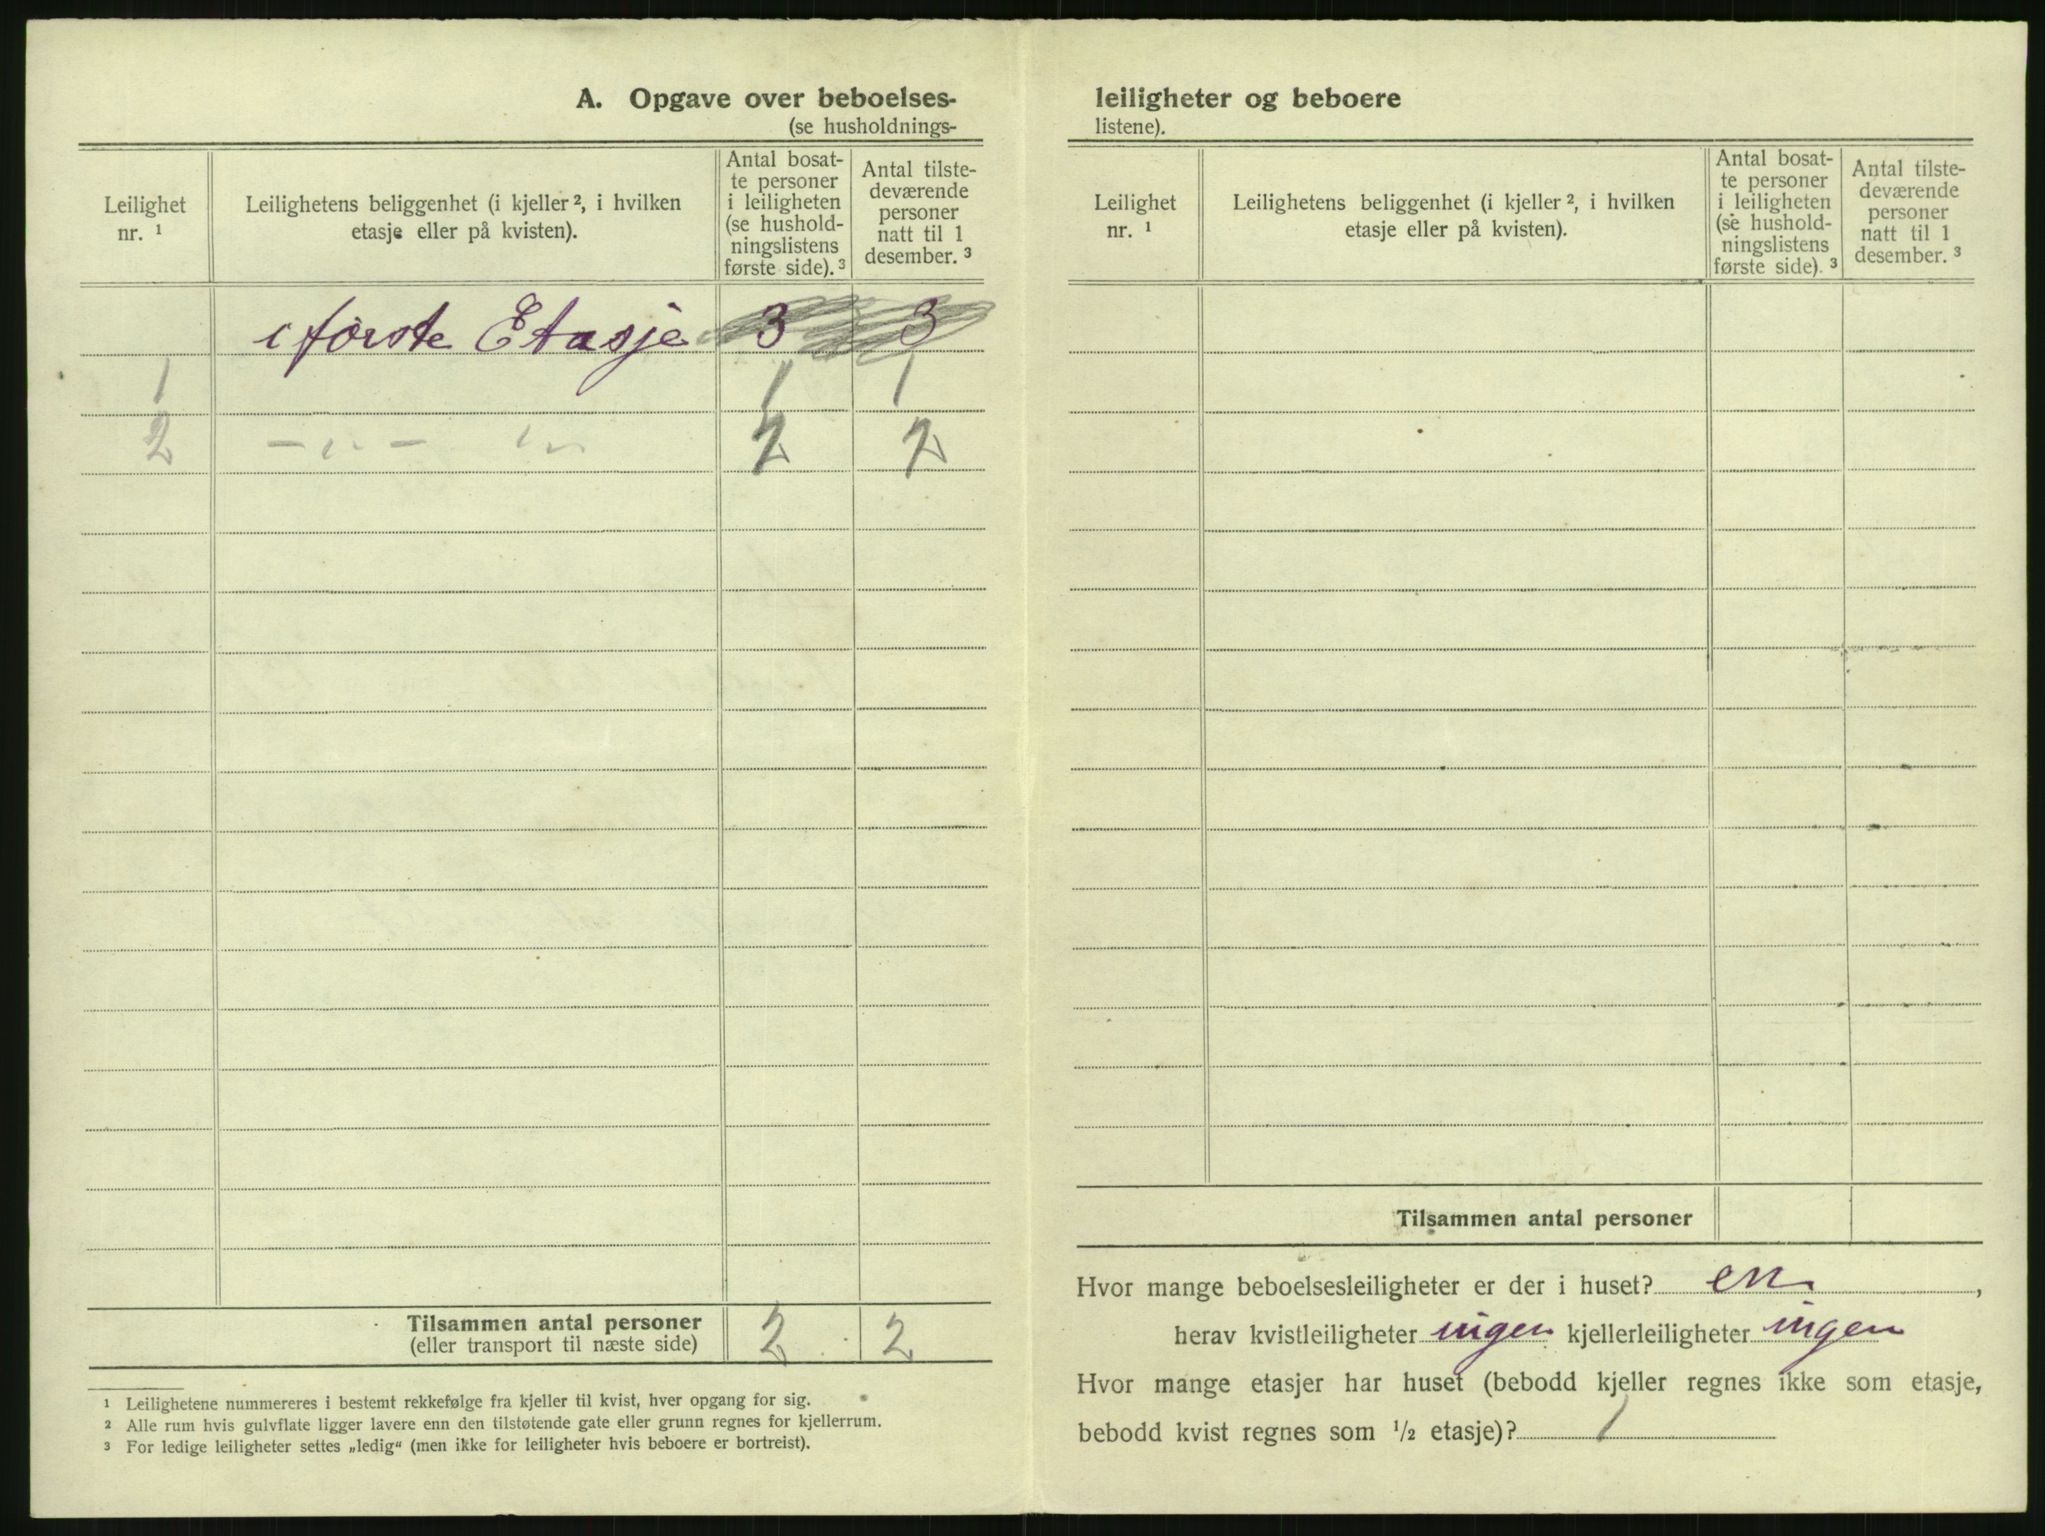 A. Opgave over beboelses-
(se husholdnings-
Leilighet nr. ¹
Leilighetens beliggenhet (i kjeller ², i hvilken etasje eller på kvisten).
Antal bosat-
te personer
i leiligheten
(se hushold-
ningslistens
første side). ³
Antal tilste-
deværende
personer
natt til 1
desember. ³
i første Etasje 3 3
1 1 1
2 – „ – „ 2 2
Tilsammen antal personer 2 2
(eller transport til næste side)
¹ Leilighetene nummereres i bestemt rekkefølge fra kjeller til kvist, hver opgang for sig.
² Alle rum hvis gulvflate ligger lavere enn den tilstøtende gate eller grunn regnes for kjellerrum.
³ For ledige leiligheter settes „ledig“ (men ikke for leiligheter hvis beboere er bortreist).
leiligheter og beboere
listene).
Leilighet nr. ¹
Leilighetens beliggenhet (i kjeller ², i hvilken etasje eller på kvisten).
Antal bosat-
te personer
i leiligheten
(se hushold-
ningslistens
første side). ³
Antal tilste-
deværende
personer
natt til 1
desember. ³
Tilsammen antal personer
Hvor mange beboelsesleiligheter er der i huset? en,
herav kvistleiligheter ingen kjellerleiligheter ingen
Hvor mange etasjer har huset (bebodd kjeller regnes ikke som etasje,
bebodd kvist regnes som ½ etasje)? 1